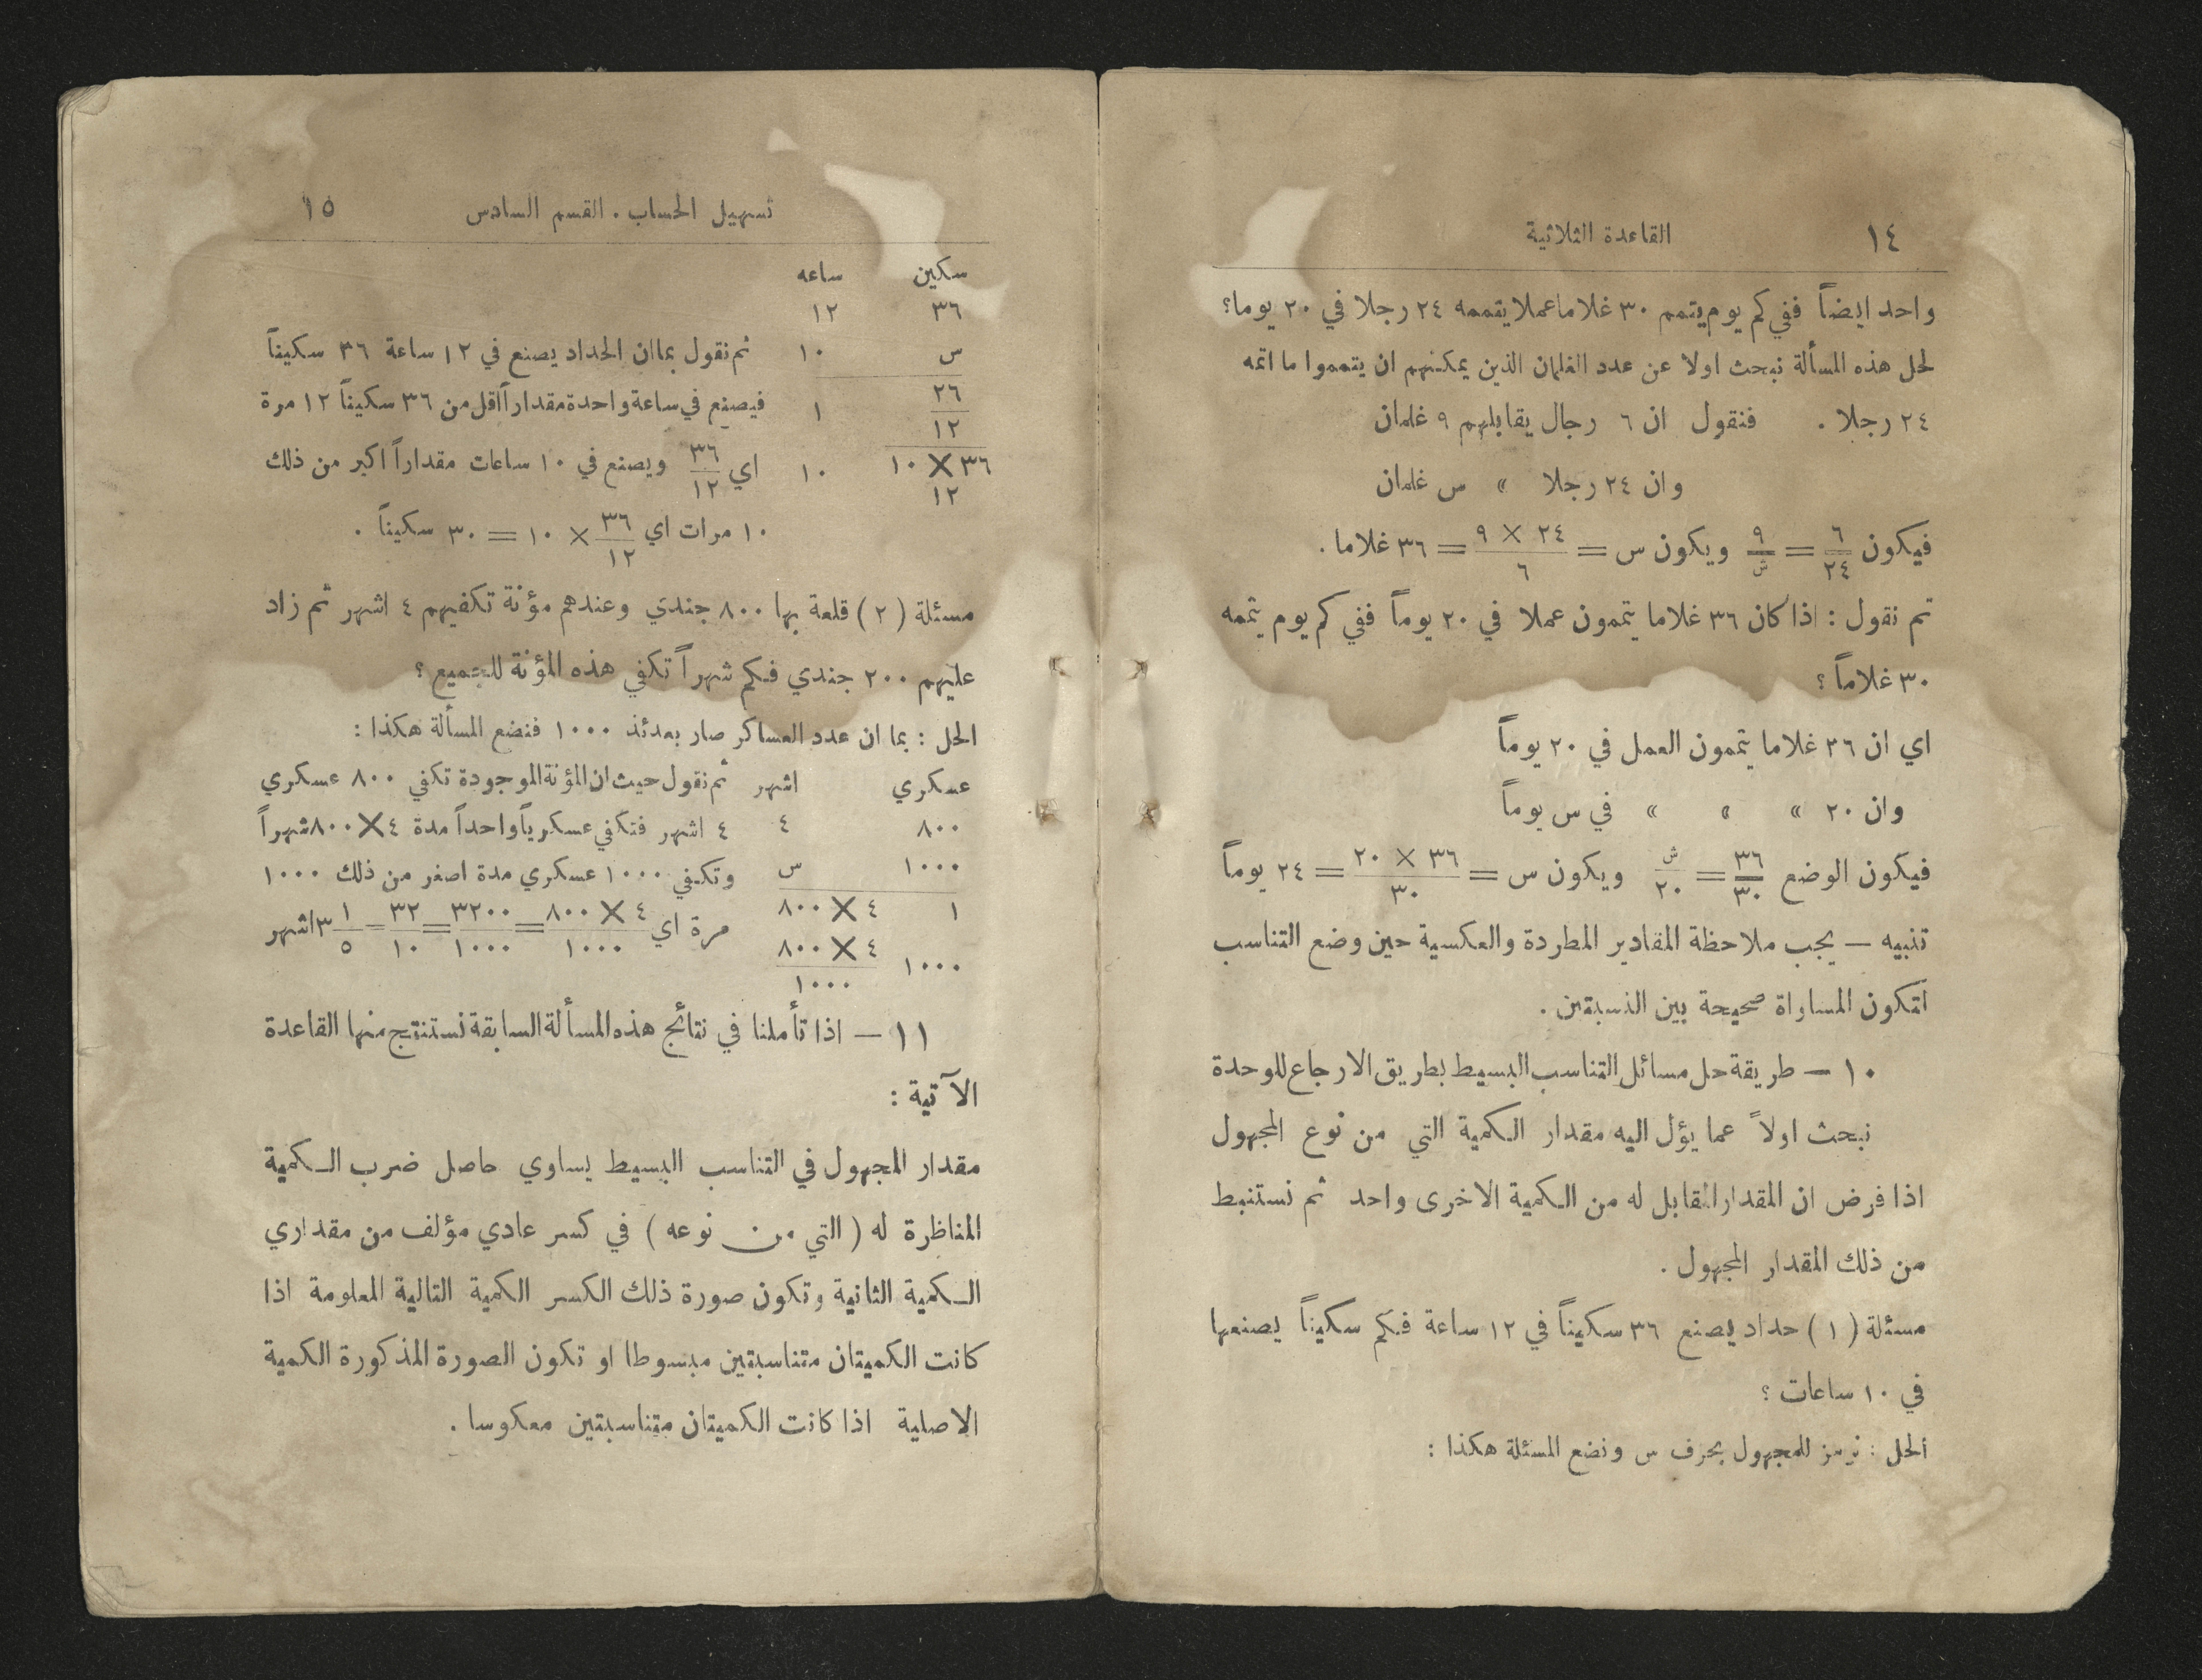 ١٤ القاعدة الثلاثية
واحد ايضاً ففي كم يوم يتمم ٣٠ غلاما عملا يتممه ٢٤ رجلا في ٢٠ يوما؟
لحل هذه المسألة نبحث اولا عن عدد الغلمان الذين يمكنهم ان يتمموا ما اتمه
٢٤ رجلا . فنقول ان ٦ رجال يقابلهم ٩ غلمان
وان ٢٤ رجلا » س غلمان
فيكون ٦/٢٤ = ٩/س ويكون س = ٢٤ × ٩/٦ = ٣٦ غلاما .
ثم نقول : اذا كان ٣٦ غلاما يتممون عملا في ٢٠ يوماً ففي كم يوم يتمه
٣٠ غلاماً ؟
اي ان ٣٦ غلاما يتممون العمل في ٢٠ يوماً
وان ٢٠ » » » في س يوماً
فيكون الوضع ٣٦/٣٠ = س/٢٠ ويكون س = ٣٦ × ٢٠/٣٠ = ٢٤ يوماً
تنبيه — يجب ملاحظة المقادير المطردة والعكسية حين وضع التناسب
لتكون المساواة صحيحة بين النسبتين .
١٠ — طريقة حل مسائل التناسب البسيط بطريق الارجاع للوحدة
نبحث اولاً عما يؤل اليه مقدار الكمية التي من نوع المجهول
اذا فرض ان المقدار المقابل له من الكمية الاخرى واحد ثم نستنبط
من ذلك المقدار المجهول .
مسئلة (١) حداد يصنع ٣٦ سكيناً في ١٢ ساعة فكم سكيناً يصنعها
في ١٠ ساعات ؟
الحل : نرمز للمجهول بحرف س ونضع المسئلة هكذا :
تسهيل الحساب . القسم السادس ١٥
سكين ساعه
٣٦ ١٢
س ١٠ ثم نقول بما ان الحداد يصنع في ١٢ ساعة ٣٦ سكيناً
٢٦/١٢ ١ فيصنع في ساعة واحدة مقداراً اقل من ٣٦ سكيناً ١٢ مرة
٣٦ × ١٠/١٢ ١٠ اي ٣٦/١٢ ويصنع في ١٠ ساعات مقداراً اكبر من ذلك
١٠ مرات اي ٣٦/١٢ × ١٠ = ٣٠ سكيناً .
مسئلة (٢) قلعة بها ٨٠٠ جندي وعندهم مؤنة تكفيهم ٤ اشهر ثم زاد
عليهم ٢٠٠ جندي فكم شهراً تكفي هذه المؤنة للجميع ؟
الحل : بما ان عدد العساكر صار بعدئذ ١٠٠٠ فنضع المسألة هكذا :
عسكري اشهر ثم نقول حيث ان المؤنة الموجودة تكفي ٨٠٠ عسكري
٨٠٠ ٤ ٤ اشهر فتكفي عسكرياً واحداً مدة ٤×٨٠٠ شهراً
١٠٠٠ س وتكفي ١٠٠٠ عسكري مدة اصغر من ذلك ١٠٠٠
١ ٤×٨٠٠ مرة اي ٤×٨٠٠/١٠٠٠ = ٣٢٠٠/١٠٠٠ = ٣٢/١٠ = ٣ ١/٥ اشهر
١٠٠٠ ٤×٨٠٠/١٠٠٠
١١ — اذا تأملنا في نتائج هذه المسألة السابقة نستنتج منها القاعدة
الآتية :
مقدار المجهول في التناسب البسيط يساوي حاصل ضرب الكمية
المناظرة له (التي من نوعه) في كسر عادي مؤلف من مقداري
الكمية الثانية وتكون صورة ذلك الكسر الكمية التالية المعلومة اذا
كانت الكميتان متناسبتين مبسوطا او تكون الصورة المذكورة الكمية
الاصلية اذا كانت الكميتان متناسبتين معكوسا .